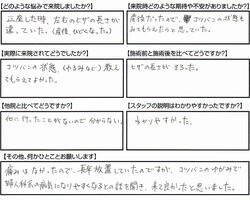 【どのような悩みで来院しましたか?】
正座した時、左右のヒザの長さが
違っていた。(産後、ひどくなった。)
【来院時どのような期待や不安がありましたか?】
産後だったので、コツバンの状態も
みてもらえたらと思っていた。
【実際に来院されてどうでしたか?】
コツバンの状態、(ゆるみなど)教え
てもらえてよかった。
【施術前と施術後を比べてどうですか?】
ヒザの長さがそろった。
【他院と比べてどうですか?】
他に行ったことがないので分からない。
【スタッフの説明はわかりやすかったですか?】
わかりやすかった。
【その他、何かひとことお願いします】
痛みはなかったので、長年放置していたのですが、コツバンのゆがみで
婦人科系の病気になりやすくなるとの話を聞き、来て良かったと思いました。